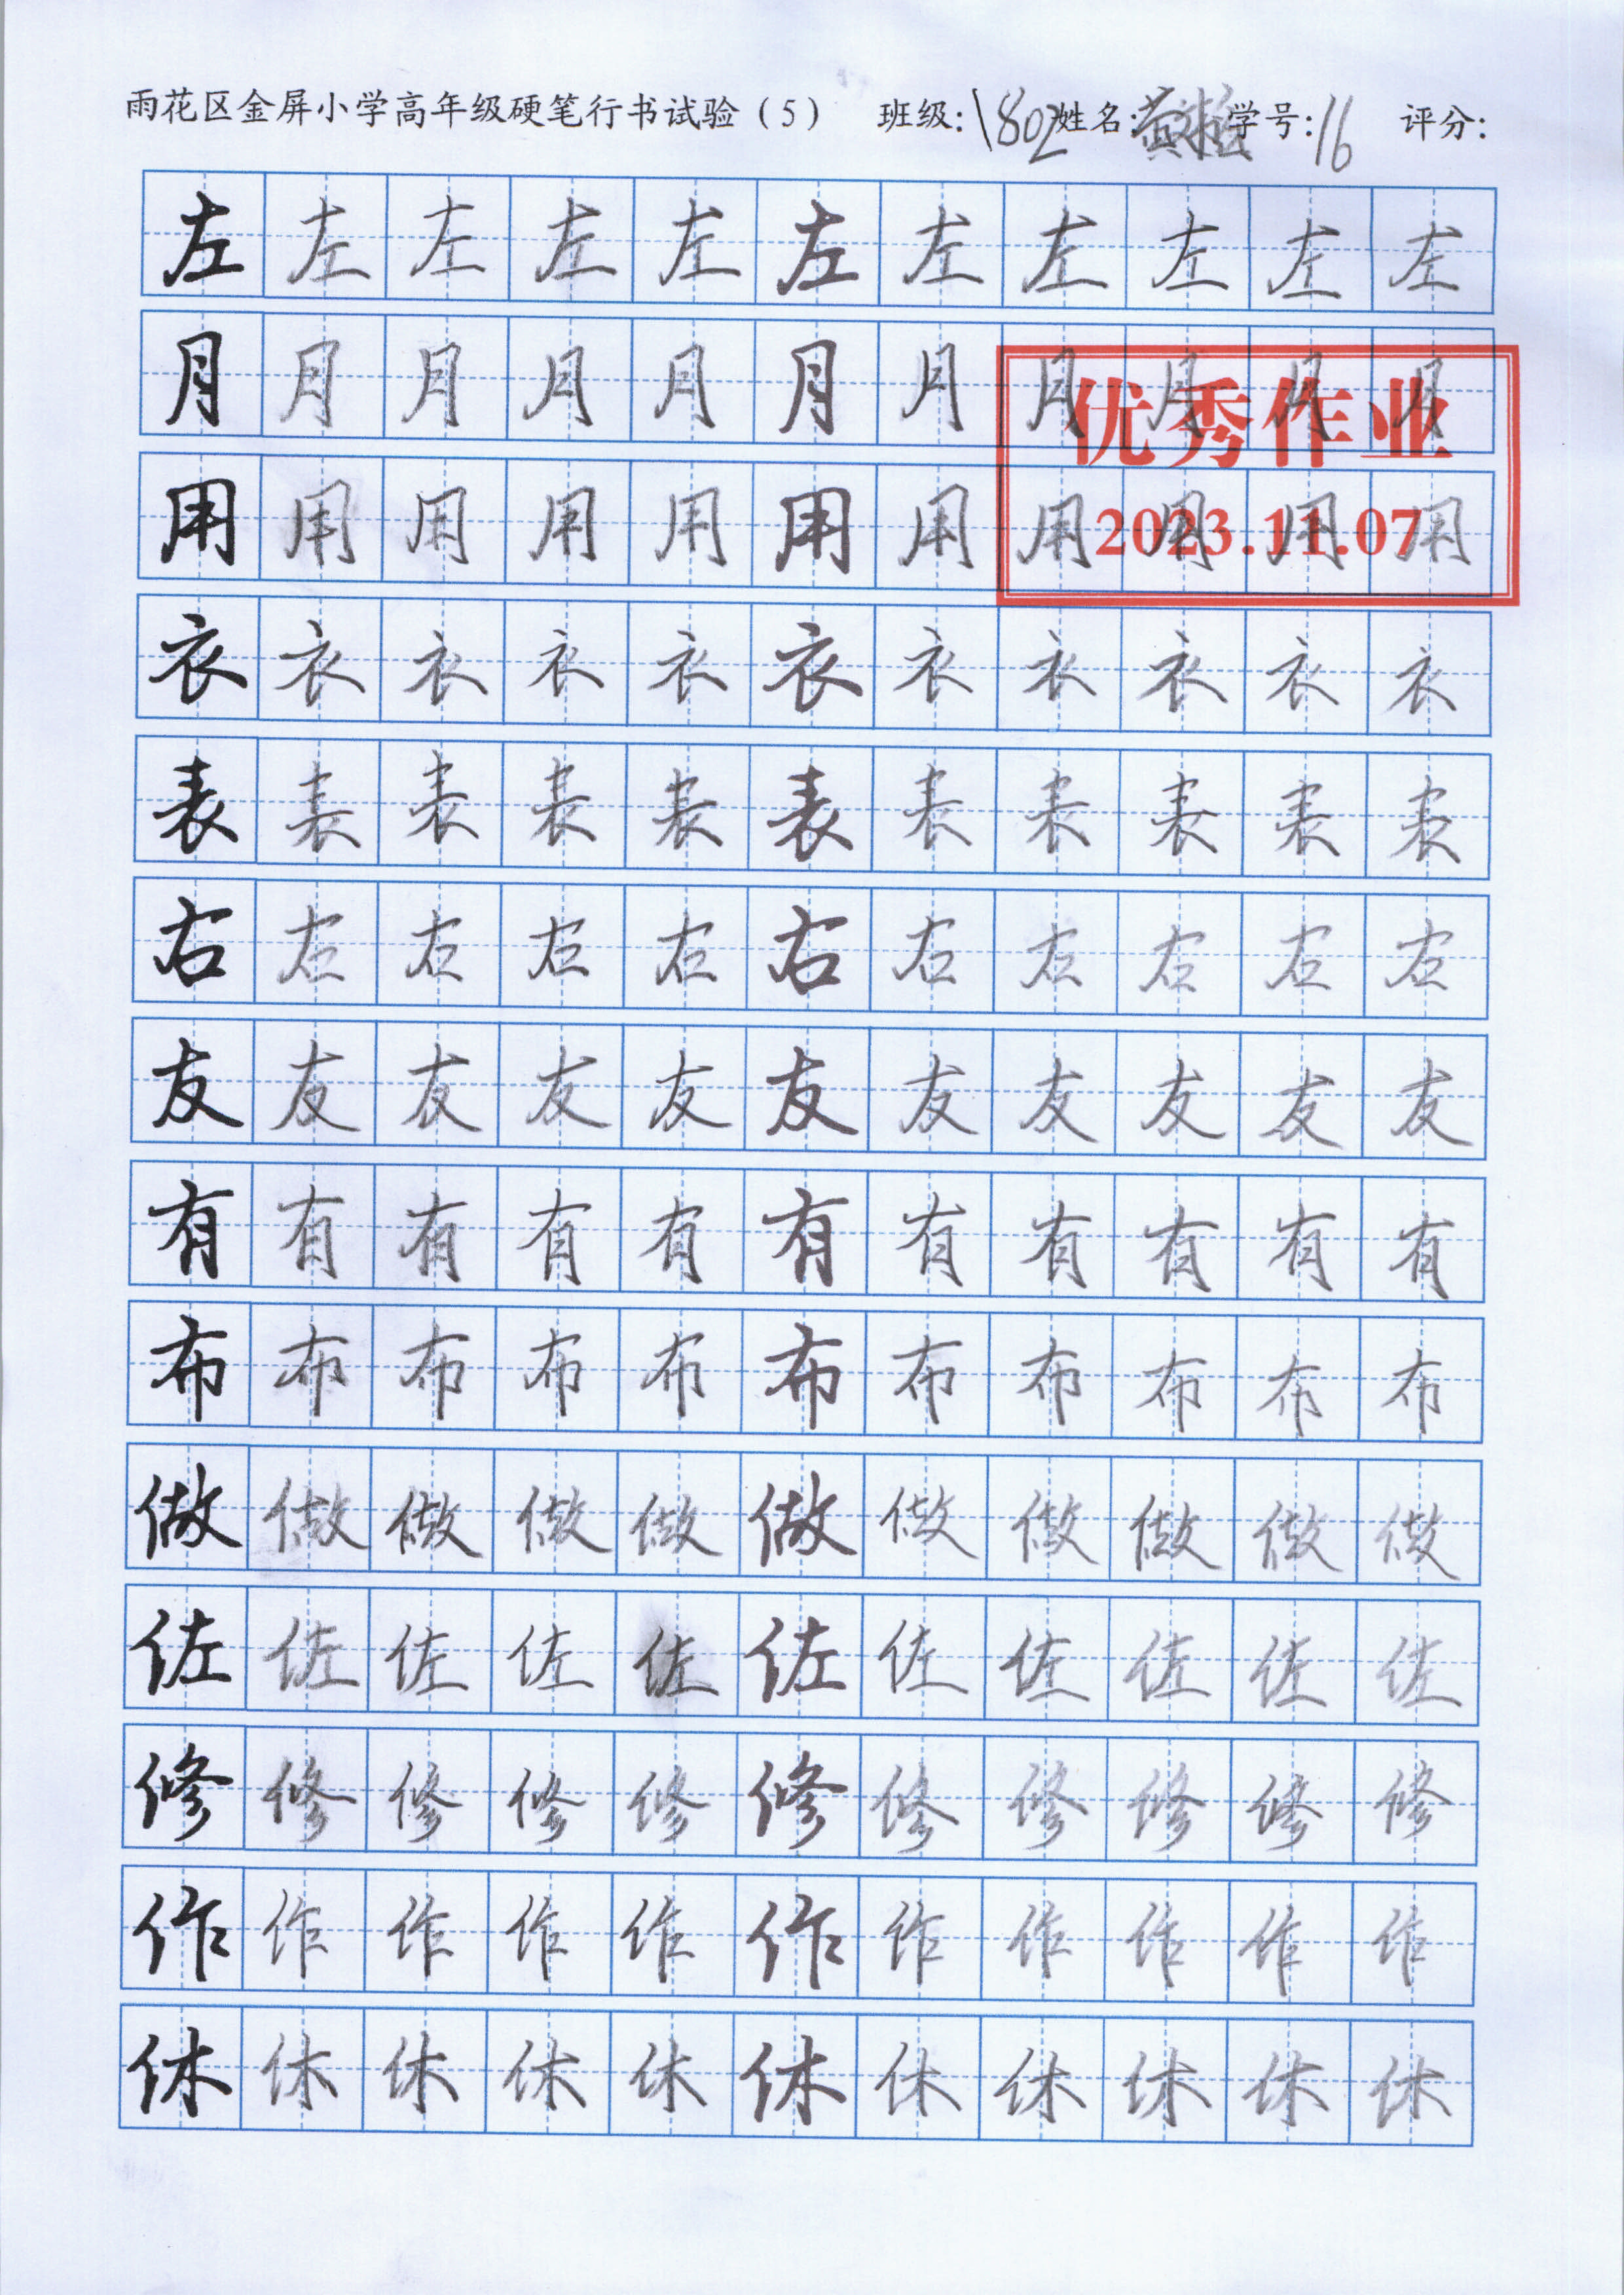 雨花区金屏小学高年级硬笔行书试验（5） 班级:1802 姓名: 学号:16 评分:
左左左左左左左左左左左
月月月月月月月月月月月
优秀作业
用用用用用用用用用用用
2023.11.07
衣衣衣衣衣衣衣衣衣衣衣
表表表表表表表表表表表
右右右右右右右右右右右
友友友友友友友友友友友
有有有有有有有有有有有
布布布布布布布布布布布
做做做做做做做做做做做
佐佐佐佐佐佐佐佐佐佐佐
修修修修修修修修修修修
作作作作作作作作作作作
休休休休休休休休休休休